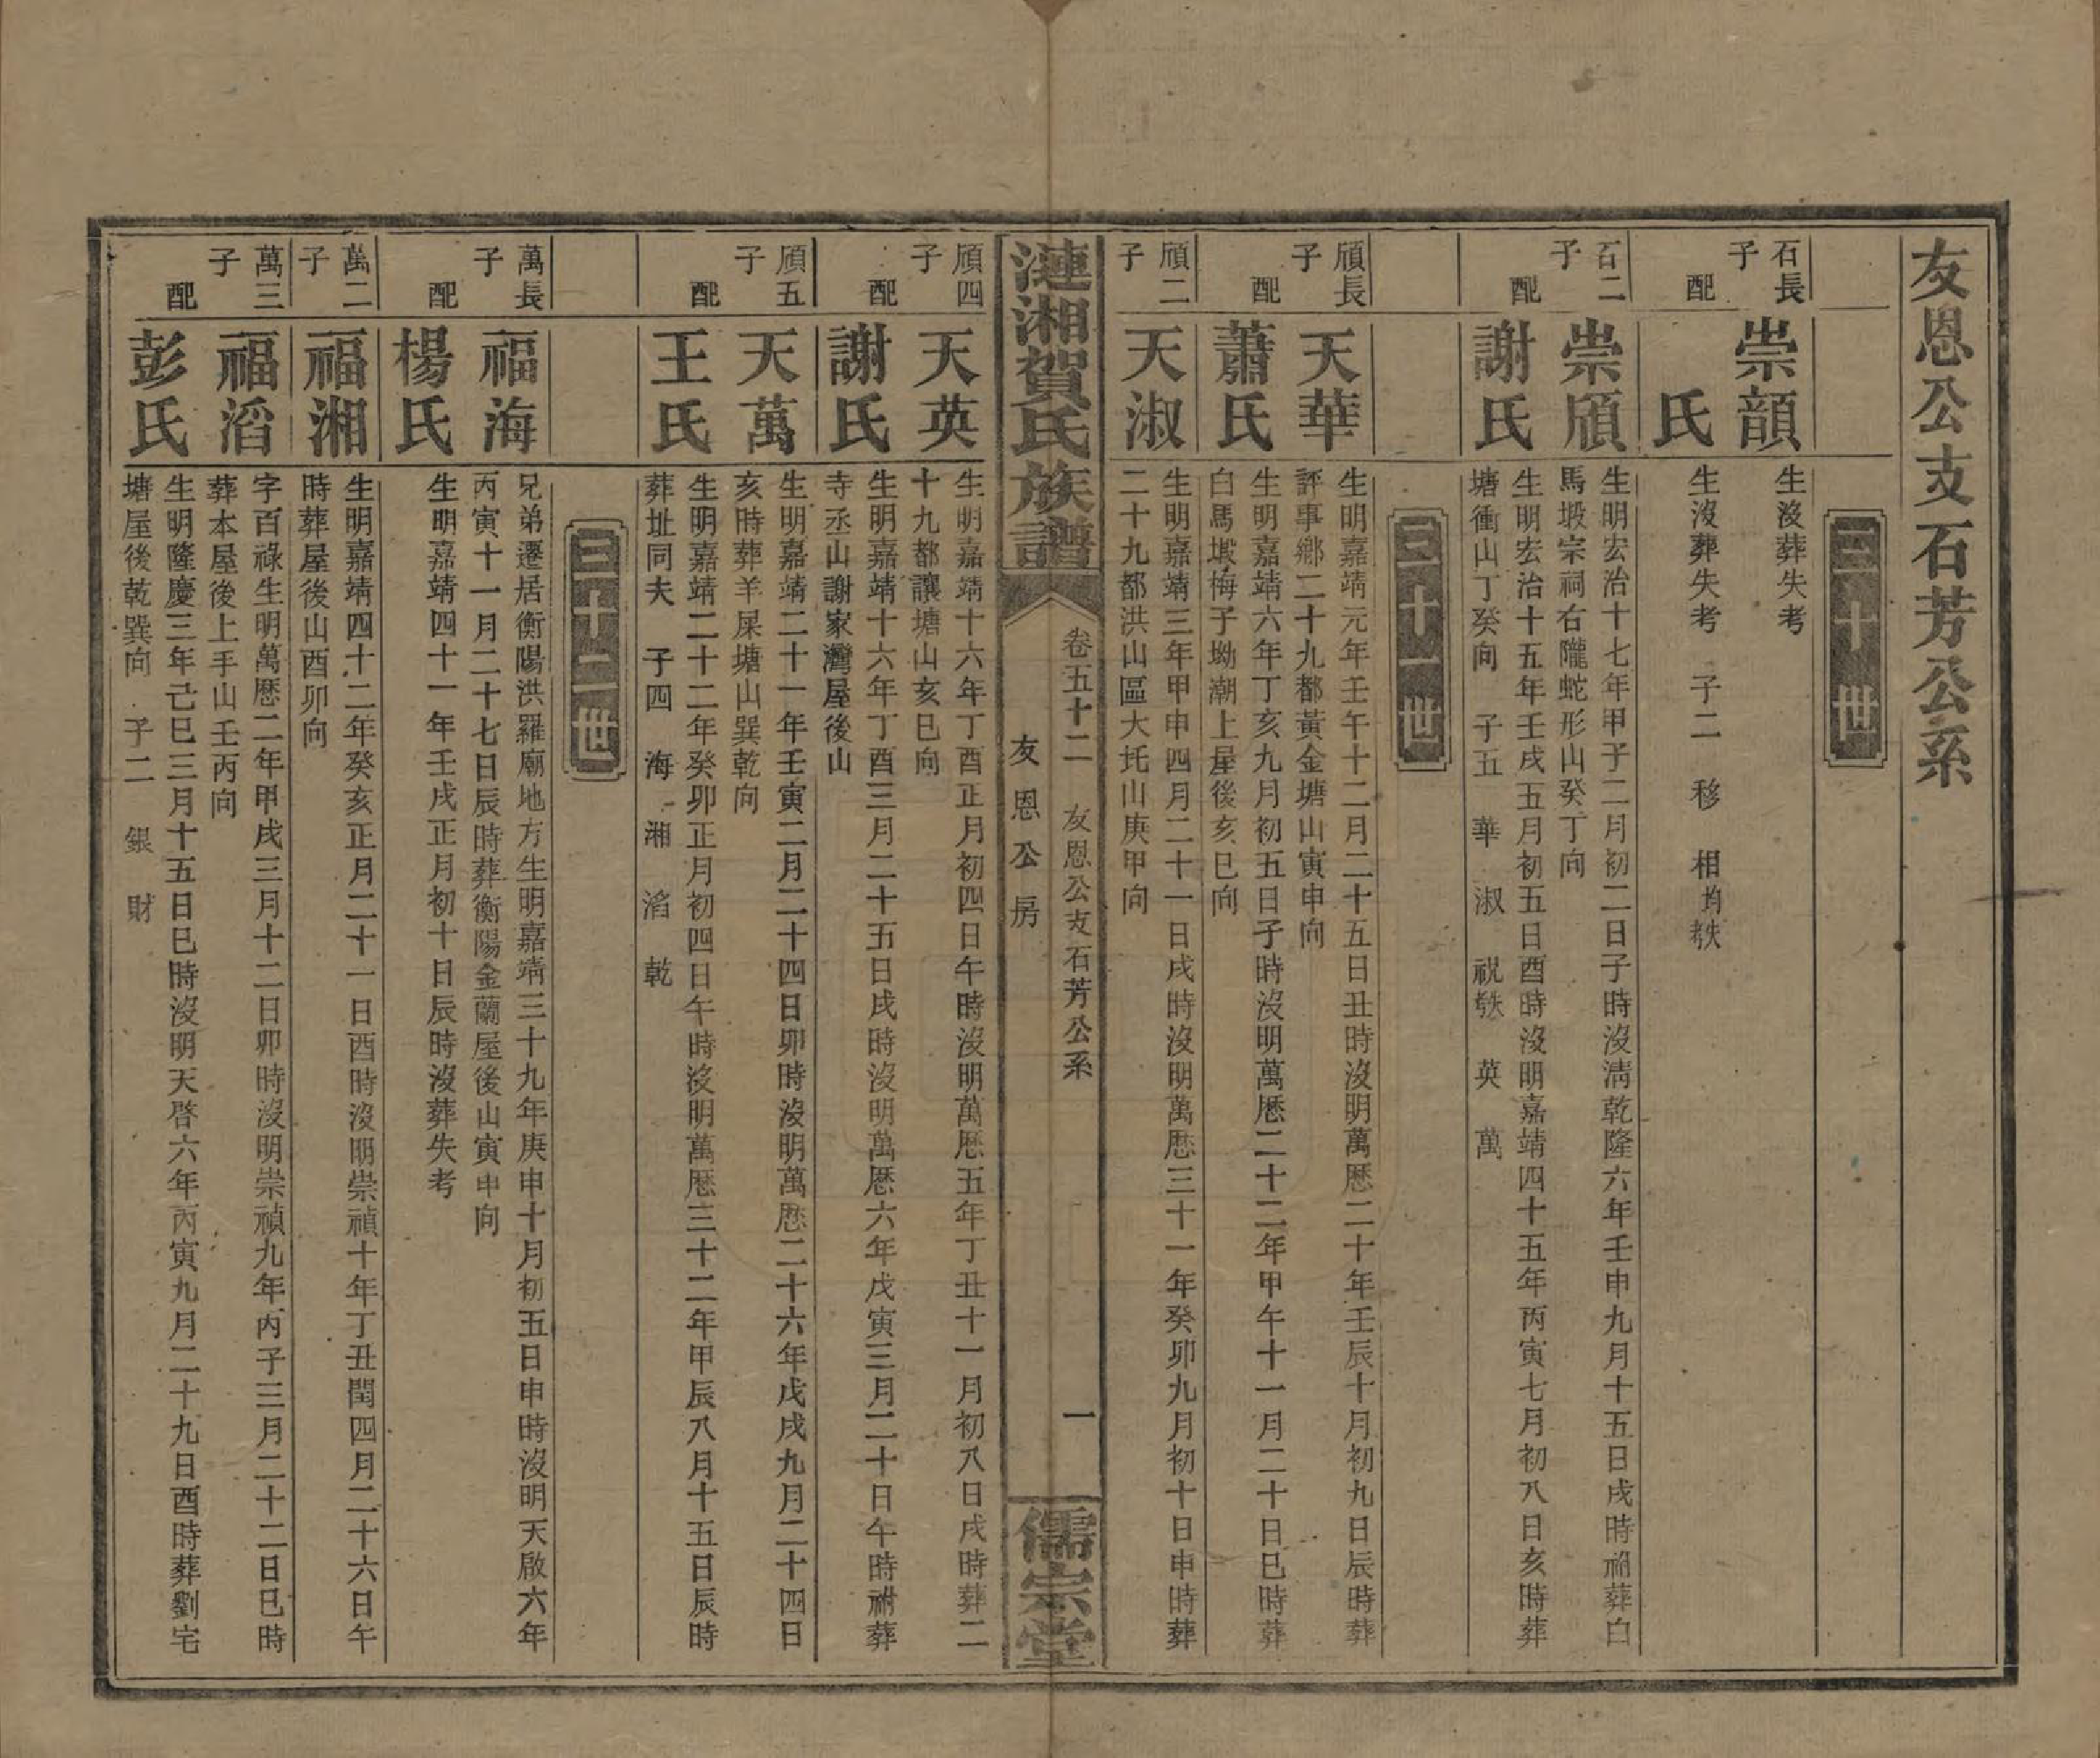 友恩公支石芳公系
三十世
石長子
崇顗
生沒葬失考
配
氏
生沒葬失考 子二 移 相均軼
石二子
崇頎
生明宏治十七年甲子二月初二日子時沒清乾隆六年壬申九月十五日戌時祔葬白
馬塅宗祠右隴蛇形山癸丁向
配
謝氏
生明宏治十五年壬戌五月初五日酉時沒明嘉靖四十五年丙寅七月初八日亥時葬
塘衝山丁癸向 子五 華 淑 祝軼 英 萬
三十一世
頎長子
天華
生明嘉靖元年壬午十二月二十五日丑時沒明萬厯二十年壬辰十月初九日辰時葬
評事鄉二十九都黃金塘山寅申向
配
蕭氏
生明嘉靖六年丁亥九月初五日子時沒明萬厯二十二年甲午十一月二十日巳時葬
白馬塅梅子坳潮上屋後亥巳向
頎二子
天淑
生明嘉靖三年甲申四月二十一日戌時沒明萬厯三十一年癸卯九月初十日申時葬
二十九都洪山區大托山庚甲向
漣湘賀氏族譜
卷五十二 友恩公支石芳公系
友恩公房
一
儒宗堂
頎四子
天英
生明嘉靖十六年丁酉正月初四日午時沒明萬厯五年丁丑十一月初八日戌時葬二
十九都讓塘山亥巳向
配
謝氏
生明嘉靖十六年丁酉三月二十五日戌時沒明萬厯六年戊寅三月二十日午時祔葬
寺丞山謝家灣屋後山
頎五子
天萬
生明嘉靖二十一年壬寅二月二十四日卯時沒明萬厯二十六年戊戌九月二十四日
亥時葬羊屎塘山巽乾向
配
王氏
生明嘉靖二十二年癸卯正月初四日午時沒明萬厯三十二年甲辰八月十五日辰時
葬址同夫 子四 海 湘 滔 乾
三十二世
萬長子
福海
兄弟遷居衡陽洪羅廟地方生明嘉靖三十九年庚申十月初五日申時沒明天啟六年
丙寅十一月二十七日辰時葬衡陽金蘭屋後山寅申向
配
楊氏
生明嘉靖四十一年壬戌正月初十日辰時沒葬失考
萬二子
福湘
生明嘉靖四十二年癸亥正月二十一日酉時沒明崇禎十年丁丑閏四月二十六日午
時葬屋後山酉卯向
萬三子
福滔
字百祿生明萬厯二年甲戌三月十二日卯時沒明崇禎九年丙子三月二十二日巳時
葬本屋後上手山壬丙向
配
彭氏
生明隆慶三年己巳三月十五日巳時沒明天啓六年丙寅九月二十九日酉時葬劉宅
塘屋後乾巽向 子二 銀 財